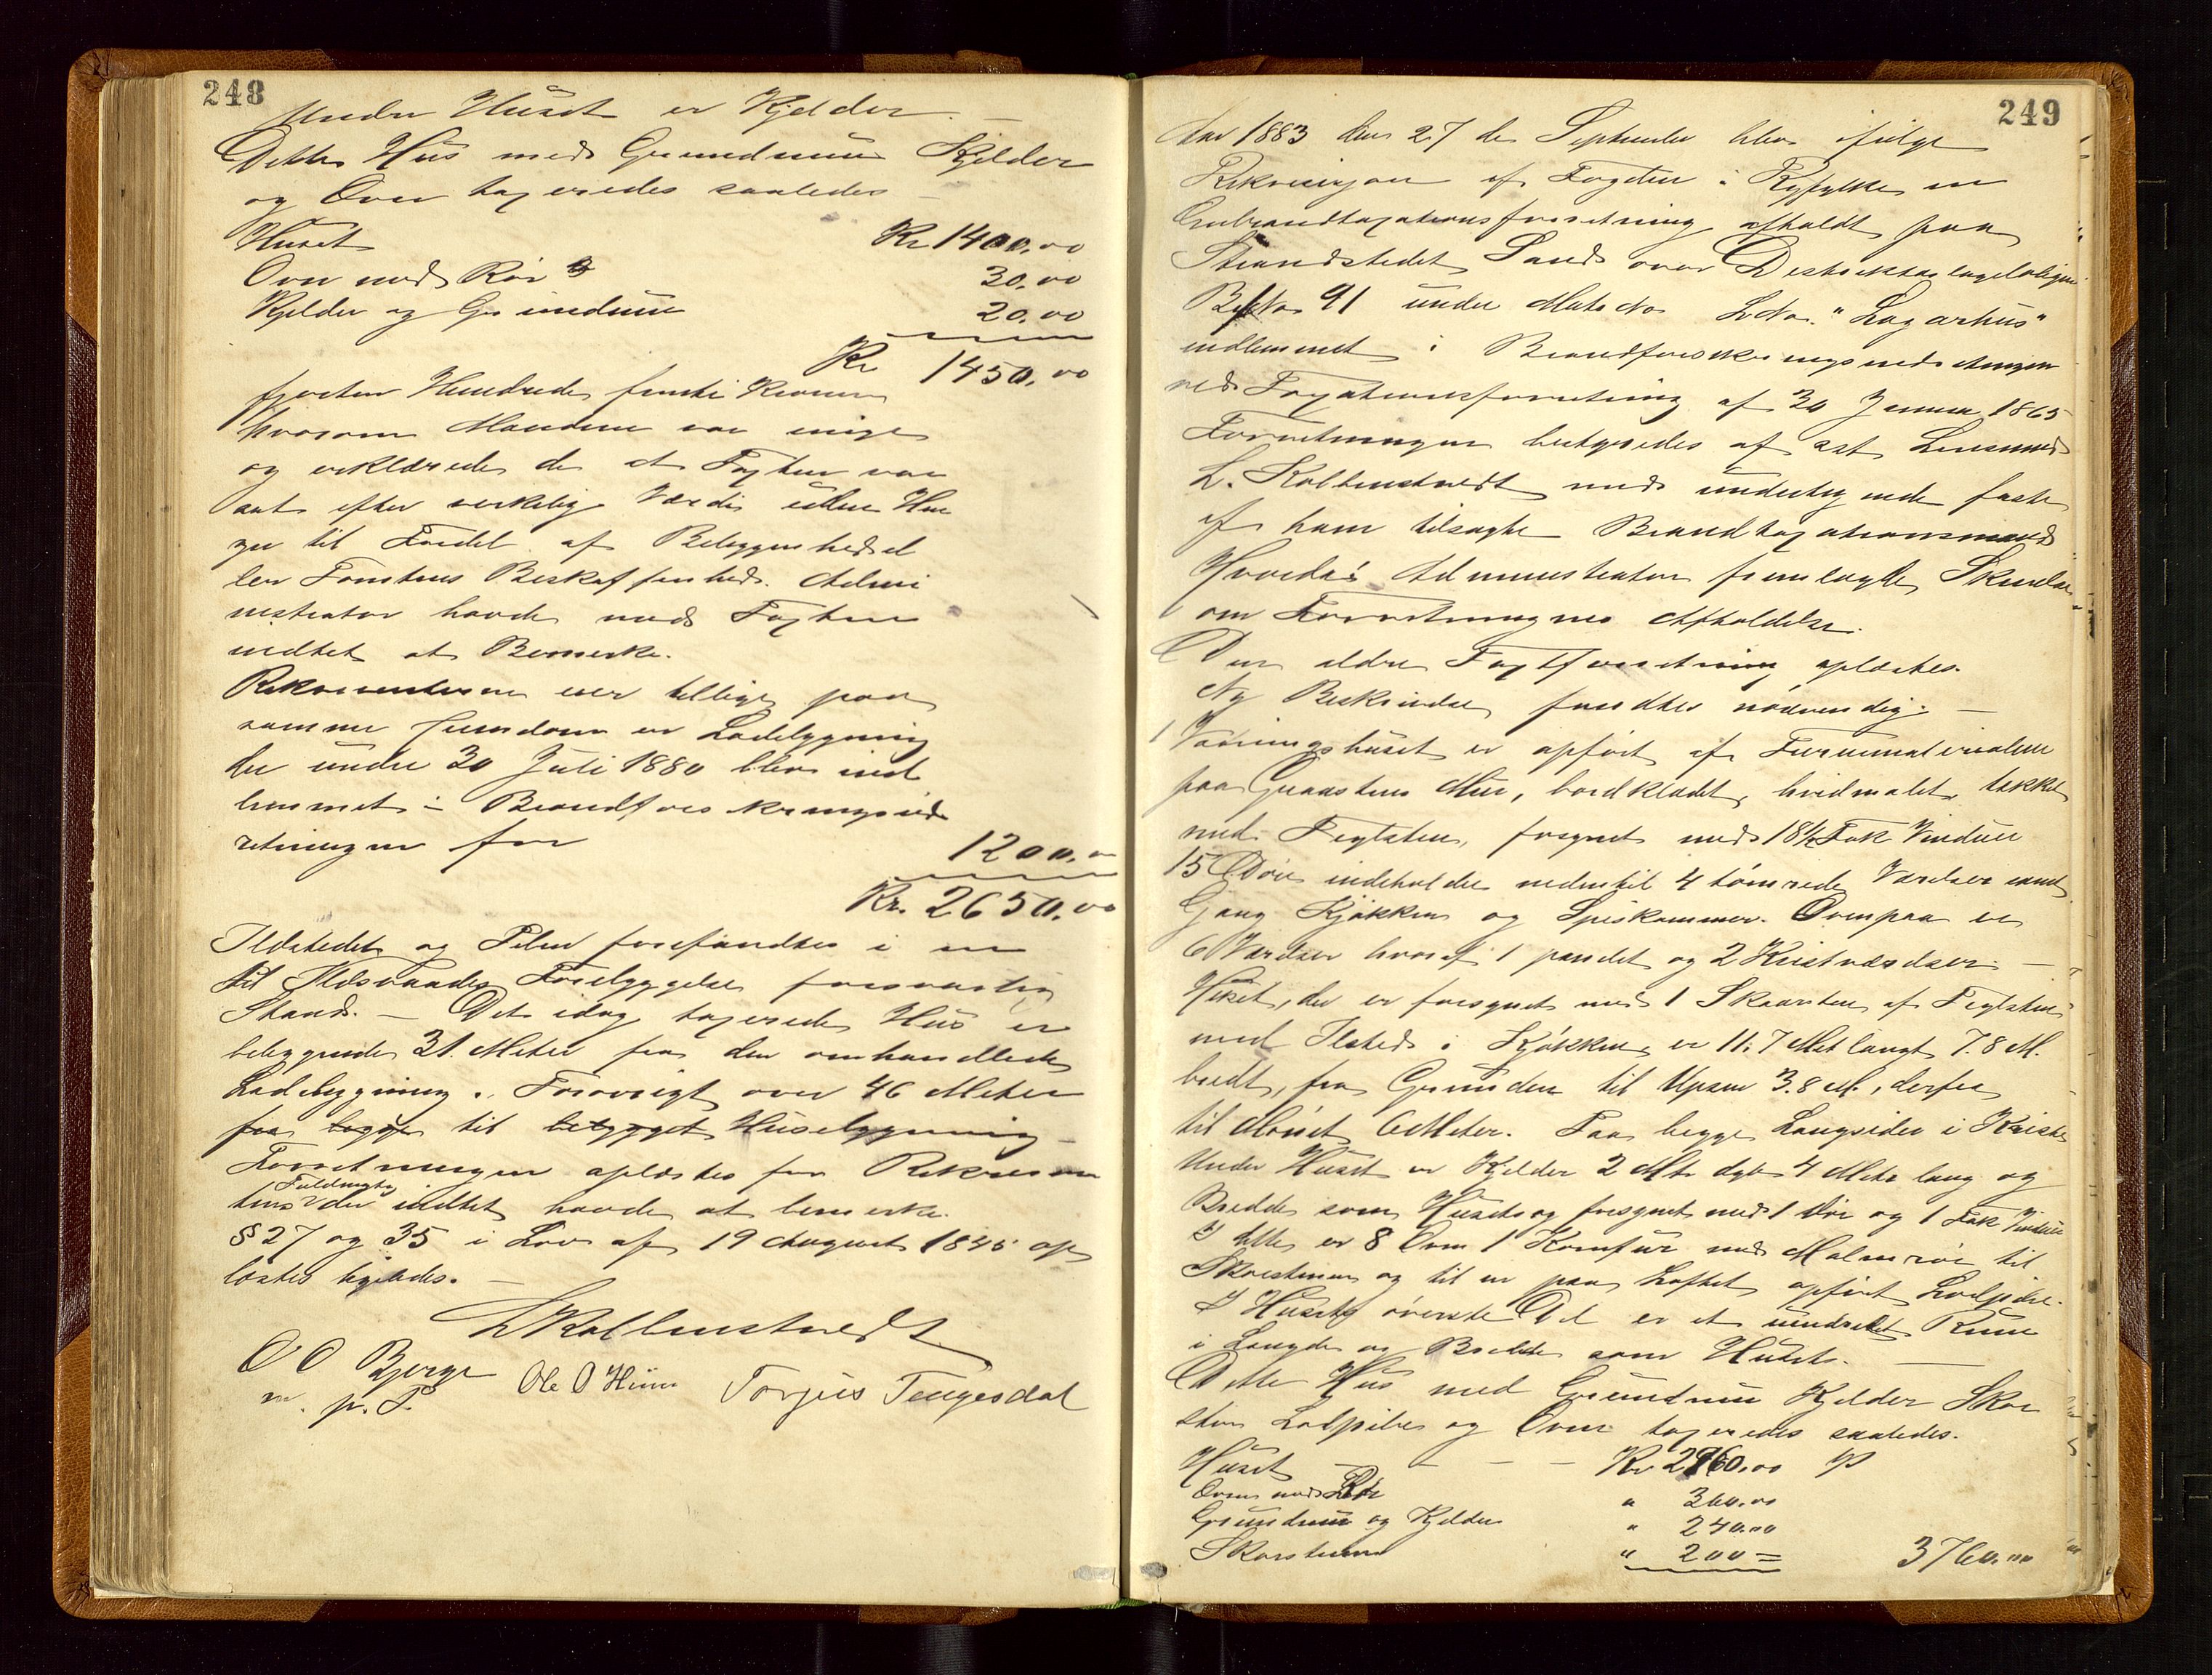 248
Under Huset er Kjelder. —
Dette Hus med Grundmur Kjelder
og Ovn taxeredes saaledes
Huset Kr 1400,00
Ovn med Rör 30,00
Kjelder og Grundmur 20,00
Kr 1450,00
fjorten Hundrede femti Kroner
hvorom Mændene var enige
og erklærede de at Taxten var
sat efter verkelig Værdi uden Hen
syn til Fordel af Beliggenhed el
ler Tomtens Beskaffenhed. Admi
nistrator havde mod Taxten
indtet at Bemerke.
Rekvirenterne eier tillige paa
samme Eiendom en Ladebygning
der under 30 Juli 1880 blev ind
lemmet i Brandforsikringsind
retningen for 1200,00
Kr. 2650,00
Ildstedet og Piben forefandtes i en
til Ildsvaades Forebyggelse forsvarlig
Stand. — Det idag taxerede Hus er
beliggende 31. Meter fra den omhandlede
Ladebygning. Forøvrigt over 46 Meter
fra begge til bebygget Husebygning —
Forretningen oplæstes for Rekviren
tens Fuldmægtig der indtet havde at bemerke.
§ 27 og 35 i Lov af 19 August 1845 op
læstes ligeledes. —
L Kolbenstvedt
O O Bjerge Ole O Hiim Torjus Tengesdal
m. p. P.
249
Aar 1883 den 27 de September blev ifølge
Rekvisisjon af Fogden i Ryfylke en
Ombrandtaxationsforretning afholdt paa
Strandstedet Sand over Destriktslægebolignin
B No 91 under Mats No L No. "Lagarhus"
indlemmet i Brandforsikringsindretningen
ved Taxationsforretning af 30 Januar 1865
Forretningen bestyredes af ast Lensmand
L. Kolbenstvedt med undertegnede faste
af ham tilsagte Brandtaxationsmænd
Hvorda: Administrator fremlagde Skrivelse
om Forretningens Afholdelse.
Den eldre Taxtforretning oplæstes.
Ny Beskrivelse fandtes nödvendig. —
1 Vaaningshuset er opført af Furumaterialer
paa Graastens Mur, bordklædt, hvidmalet, tækket
med Teglsten, forsynet med 18½ Fak Vinduer
15 Döre indeholder nedentil 4 tömrede Værelser samt
Gang Kjökken og Spiskammer. Ovenpaa er
6 Værelser hvoraf 1 panelet og 2 Kvistværelser. —
Huset, der er forsynet med 1 Skorsten af Teglsten
med Ilsted i Kjökken, er 11.7 Met langt 7.8 M.
bredt, fra Grunden til Upsen 3.8 M., derfra
til Mönet 6 Meter. Paa begge Langsider i Kviste
Under Huset er Kjelder 2 Mtr dyb 4 Meter lang og
Bredde som Husets og forsynet med 1 Dör og 1 Fak Vindue
I dette er 8 Ovne 1 Komfur med Malmrör til
Skorstenen og til en paa Loftet opført Lodpibe.
I Husets överste Del er et uindredet Rum
i Længde og Bredde som Husets. —
Dette Hus med Grundmur Kjelder Skor
sten Lodpibe og Ovne taxeredes saaledes.
Huset — — — — Kr 2960,00
Ovne med Rör " 360,00
Grundmur og Kjelder " 240,00
Skorstenen " 200 = 3760,00